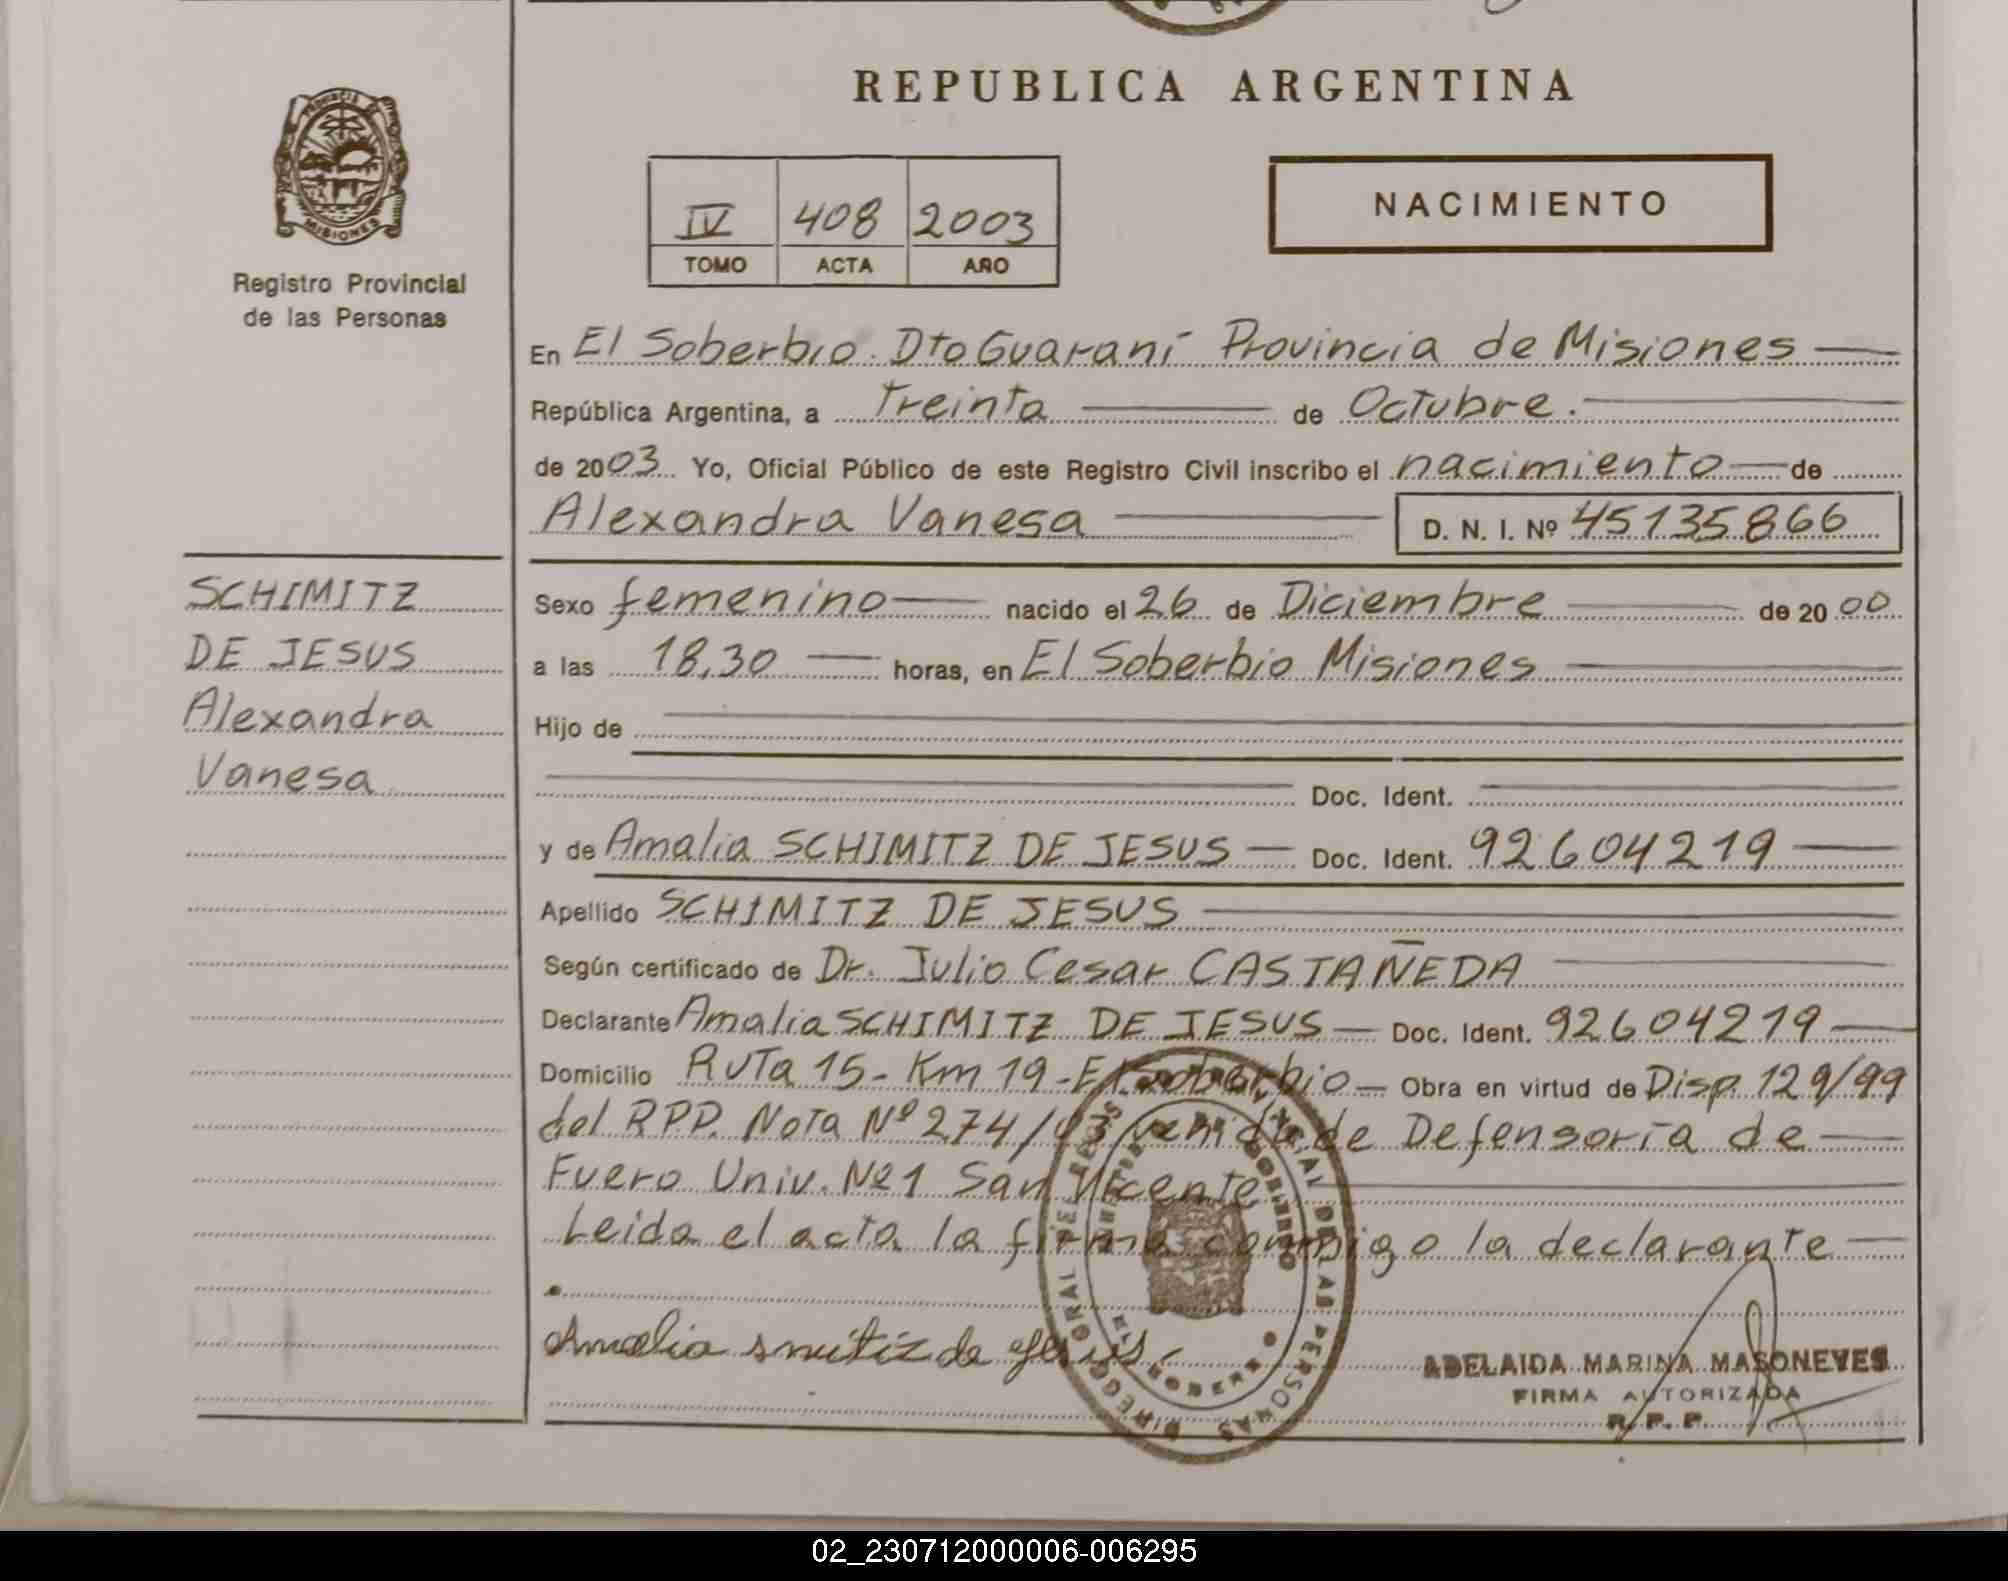 REPUBLICA ARGENTINA
PROVINCIA DE
MISIONES
Registro Provincial
de las Personas
IV 408 2003
TOMO ACTA AÑO
NACIMIENTO
En El Soberbio Dto Guaraní Provincia de Misiones
República Argentina, a Treinta de Octubre.
de 2003 Yo, Oficial Público de este Registro Civil inscribo el nacimiento de
Alexandra Vanesa D. N. I. Nº 45135866
SCHIMITZ
DE JESUS
Alexandra
Vanesa
Sexo femenino nacido el 26 de Diciembre de 2000
a las 18,30 horas, en El Soberbio Misiones
Hijo de
Doc. Ident.
y de Amalia SCHIMITZ DE JESUS Doc. Ident. 92604219
Apellido SCHIMITZ DE JESUS
Según certificado de Dr. Julio Cesar CASTAÑEDA
Declarante Amalia SCHIMITZ DE JESUS Doc. Ident. 92604219
Domicilio Ruta 15 - Km 19 - El Soberbio Obra en virtud de Disp. 129/99
del R.P.P. Nota Nº 274/03 venida de Defensoría de
Fuero Univ. Nº1 San Vicente
Leida el acta la firma conmigo la declarante
Amalia smitiz de Jesus
DIRECCION PROVINCIAL DE LAS PERSONAS
EL SOBERBIO
ADELAIDA MARINA MASONEVES
FIRMA AUTORIZADA
R. P. P.
02_230712000006-006295